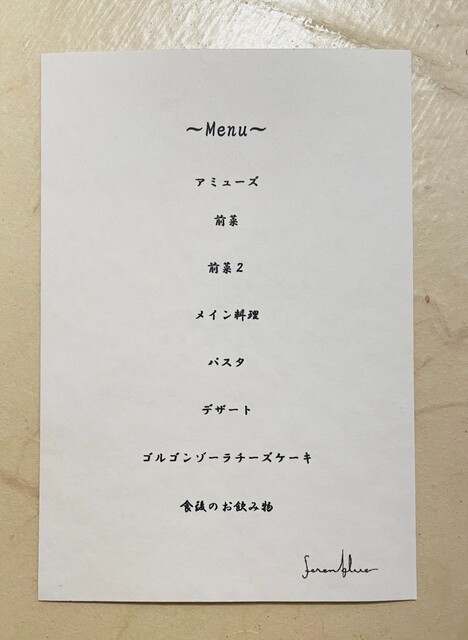 ～Menu～
アミューズ
前菜
前菜２
メイン料理
パスタ
デザート
ゴルゴンゾーラチーズケーキ
食後のお飲み物